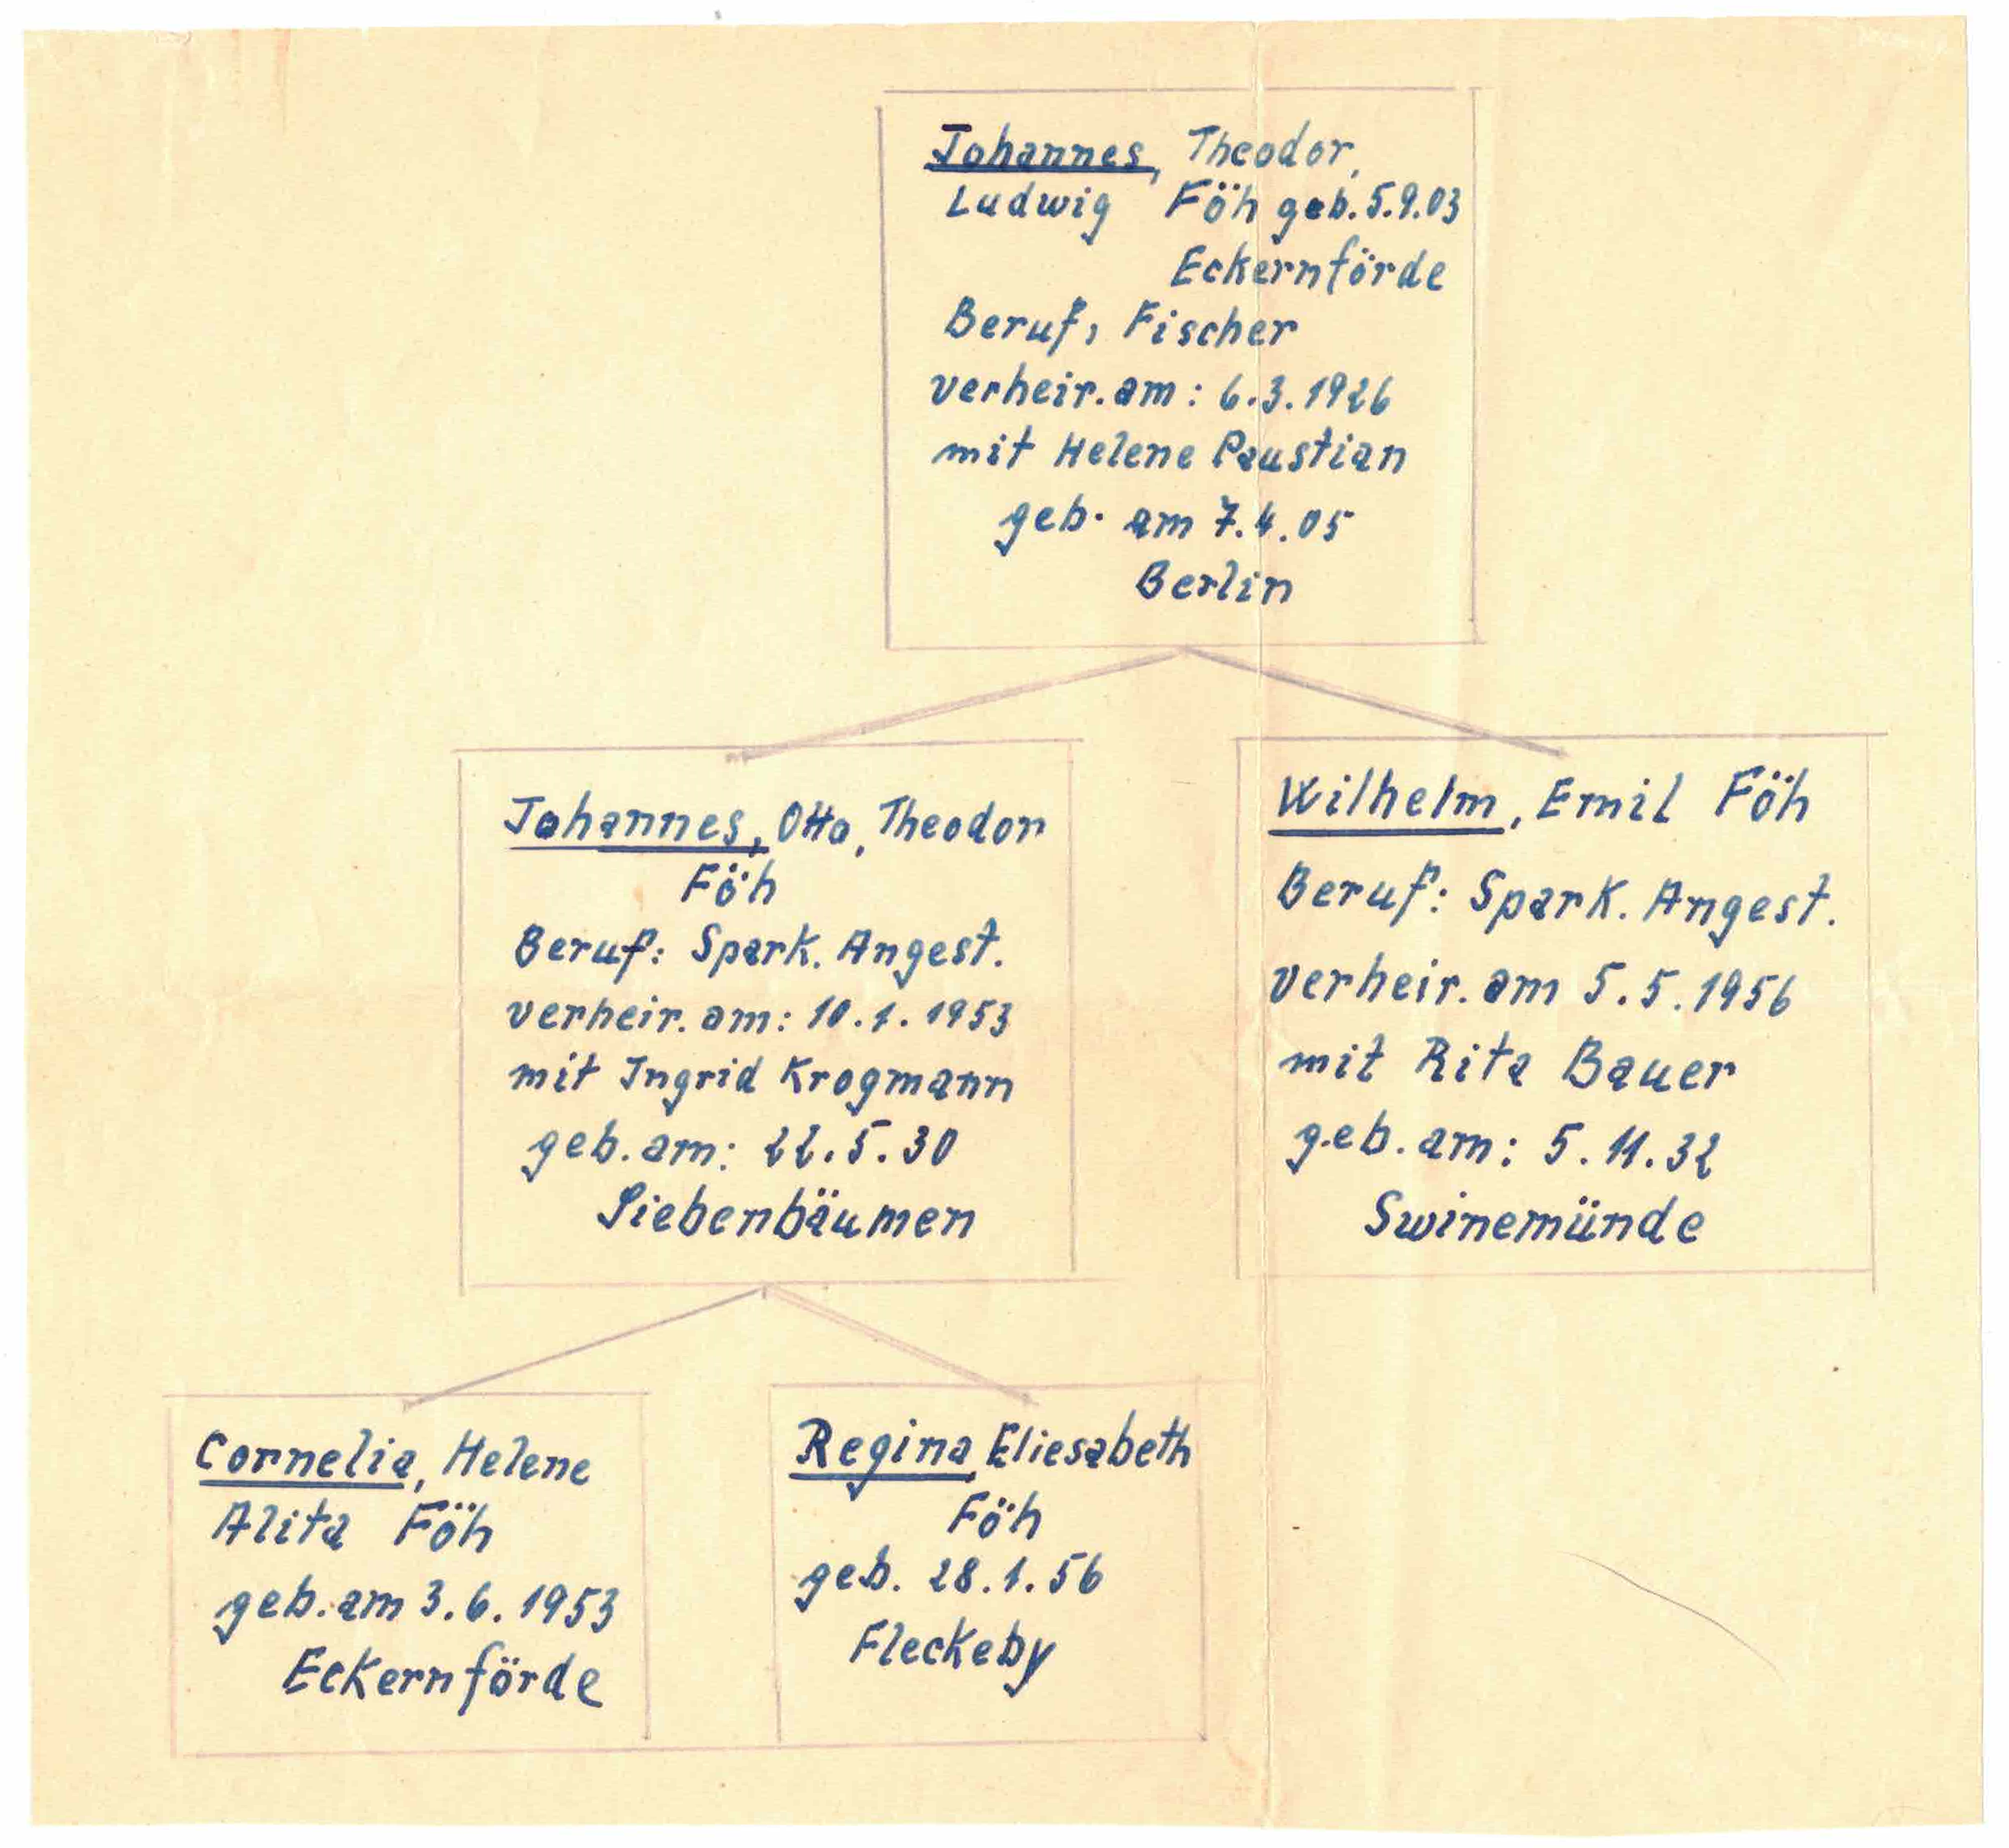 Johannes, Theodor,
Ludwig Föh geb. 5.9.03
Eckernförde
Beruf, Fischer
verheir. am: 6.3.1926
mit Helene Paustian
geb. am 7.4.05
Berlin
Johannes, Otto, Theodor
Föh
Beruf: Spark. Angest.
verheir. am: 10.1.1953
mit Ingrid Krogmann
geb. am: 22.5.30
Siebenbäumen
Wilhelm, Emil Föh
Beruf: Spark. Angest.
verheir. am 5.5.1956
mit Rita Bauer
geb. am: 5.11.32
Swinemünde
Cornelia, Helene
Alita Föh
geb. am 3.6.1953
Eckernförde
Regina, Eliesabeth
Föh
geb. 28.1.56
Fleckeby